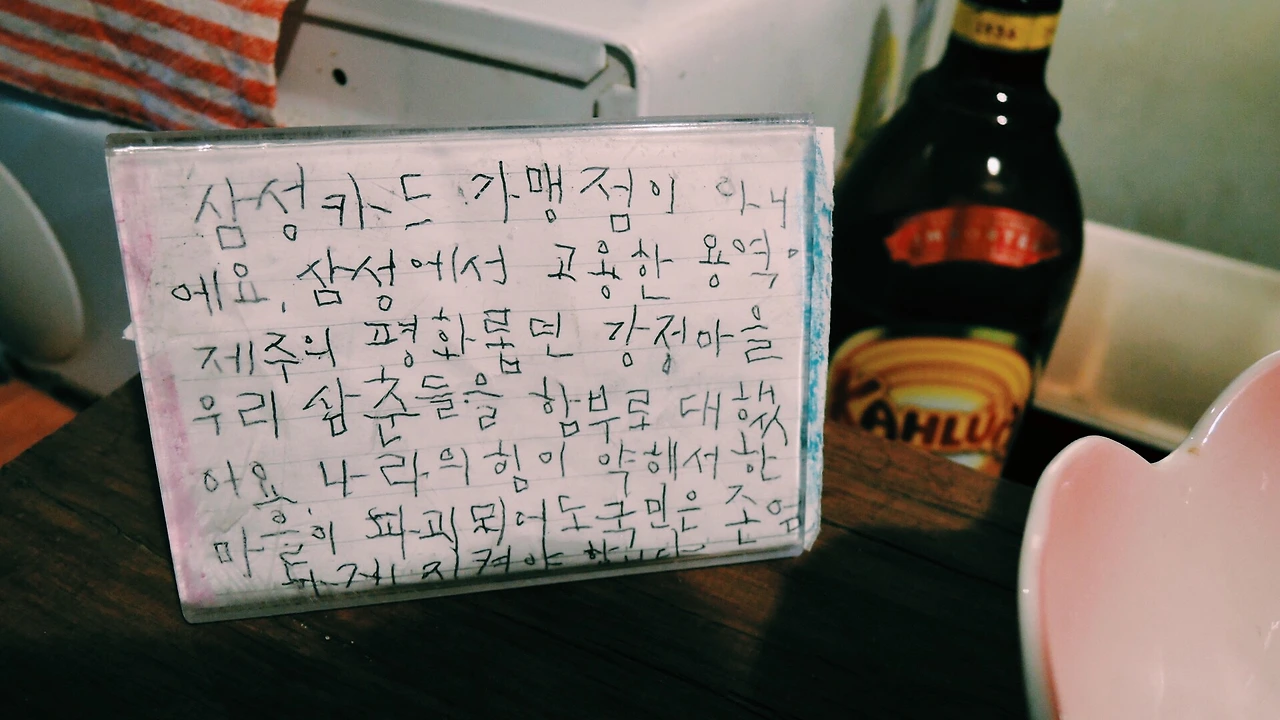 삼성카드 가맹점이 아니
에요. 삼성에서 고용한 용역,
제주의 평화롭던 강정마을
우리 삼춘들을 함부로 대했
어요 나라의 힘이 약해서 한
마을이 파괴 되어도 국민은 존엄
하게 지켜야 합니다
KAHLÚA